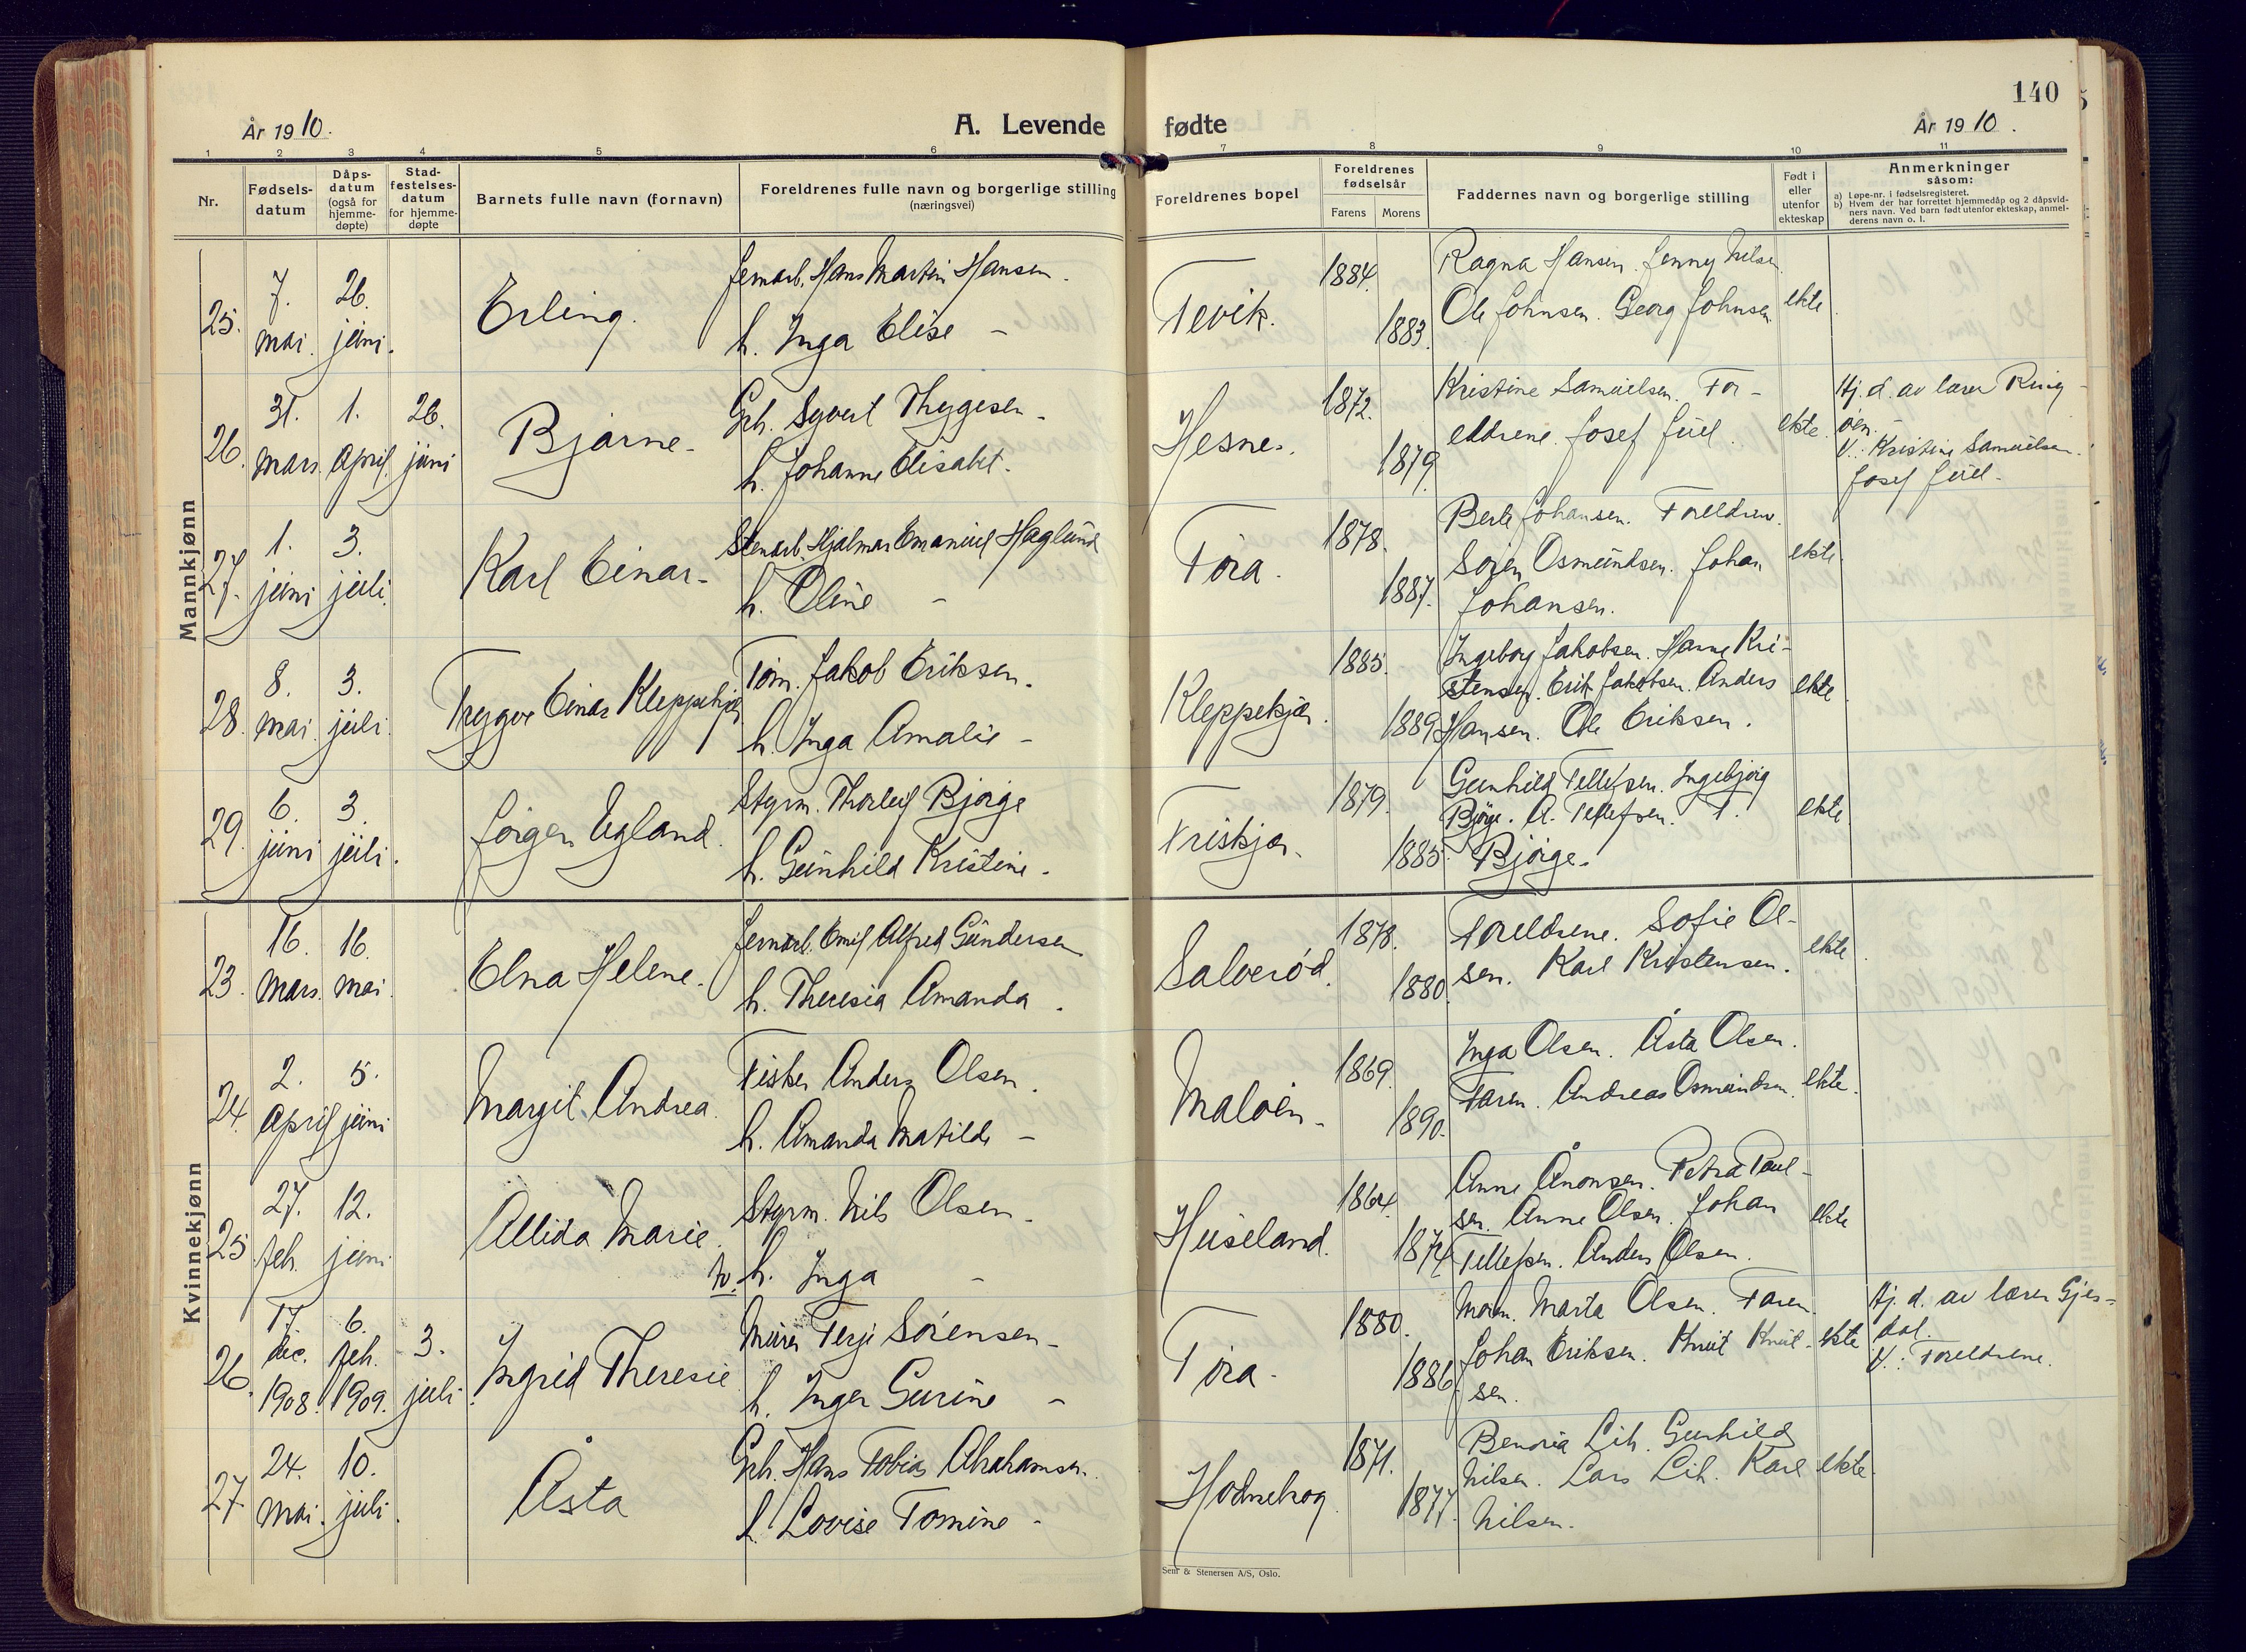 140
År 1910.
A. Levende fødte
År 1910.
1 2 3 4 5 6 7 8 9 10 11
Nr.
Fødsels-
datum
Dåps-
datum
(også for
hjemme-
døpte)
Stad-
festelses-
datum
for hjemme-
døpte
Barnets fulle navn (fornavn)
Foreldrenes fulle navn og borgerlige stilling
(næringsvei)
Foreldrenes bopel
Foreldrenes
fødselsår
Farens Morens
Faddernes navn og borgerlige stilling
Født i
eller
utenfor
ekteskap
Anmerkninger
såsom:
a) Løpe-nr. i fødselsregisteret.
b) Hvem der har forrettet hjemmedåp og 2 dåpsvid-
ners navn. Ved barn født utenfor ekteskap, anmel-
derens navn o. l.
Mannkjønn
25.
7.
mai.
26.
juni.
Erling.
Jernarb. Hans Martin Hansen.
h. Inga Elise -
Tevik.
1884.
1883.
Ragna Hansen. Jenny Nilsen.
Ole Johnsen. Georg Johnsen.
ekte
26.
31.
mars.
1.
April.
26.
juni
Bjarne.
Grh. Syvert Thygesen -
h. Johanne Elisabet.
Hesnes.
1872.
1879.
Kristine Samuelsen. For-
eldrene. Josef Juel.
ekte.
Hj. d. av lærer Ring-
øen.
V.: Kristine Samuelsen.
Josef Juel.
27.
1.
juni
3.
juli.
Karl Einar.
Stenarb. Hjalmar Emanuel Haglund
h. Oline -
Føra.
1878.
1887.
Berte Johansen. Foreldrene.
Søren Osmundsen. Johan
Johansen.
ekte.
28.
8.
mai.
3.
juli.
Trygve Einar Kleppekjær
Tøm. Jakob Eriksen.
h. Inga Amalie -
Kleppekjær.
1885.
1889.
Ingeborg Jakobsen. Hanne Kri-
stensen. Erik Jakobsen. Anders
Hansen. Ole Eriksen.
ekte
29.
6.
juni
3.
juli.
Jørgen Egland.
Styrm. Thorleif Bjørge
h. Gunhild Kristine.
Friskjær.
1879.
1885.
Gunhild Tellefsen. Ingebjørg
Bjørge. A. Tellefsen. T.
Bjørge.
ekte
Kvinnekjønn
23.
16.
Mars.
16.
mai.
Elna Helene.
Jernarb. Emil Alfred Gundersen
h. Theresia Amanda.
Salverød.
1878.
1880.
Foreldrene. Sofie Ol-
sen. Karl Kristensen.
ekte
24.
2.
April
5.
juni
Margit Andrea.
Fisker Anders Olsen.
h. Amanda Matilde -
Maløen.
1869.
1890.
Inga Olsen. Åsta Olsen.
Faren. Andreas Osmundsen.
ekte.
25
27.
feb.
12.
juni.
Allida Marie.
Styrm. Nils Olsen.
h. Inga -
Huseland.
1864.
1874
Anne Ånonsen. Petra Paul-
sen. Anne Olsen. Johan
Tellefsen. Anders Olsen.
ekte
26.
17.
dec.
1908.
6.
feb.
1909.
3.
juli.
Ingrid Theresie
Murer Terje Sørensen -
h. Inger Gurine -
Føra.
1880.
1886.
Moren. Marta Olsen. Faren.
Johan Eriksen. Knut Knut-
sen.
ekte
Hj. d. av lærer Gjes-
dal.
V.: Foreldrene.
27
24.
Mai.
10.
juli.
Åsta
Grh. Hans Tobias Abrahamsen.
h. Lovise Tomine -
Hodnebrog.
1871.
1877.
Benoria Lih. Gunhild
Nilsen. Lars Lih. Karl
Nilsen.
ekte.
Sem & Stenersen A/S, Oslo.